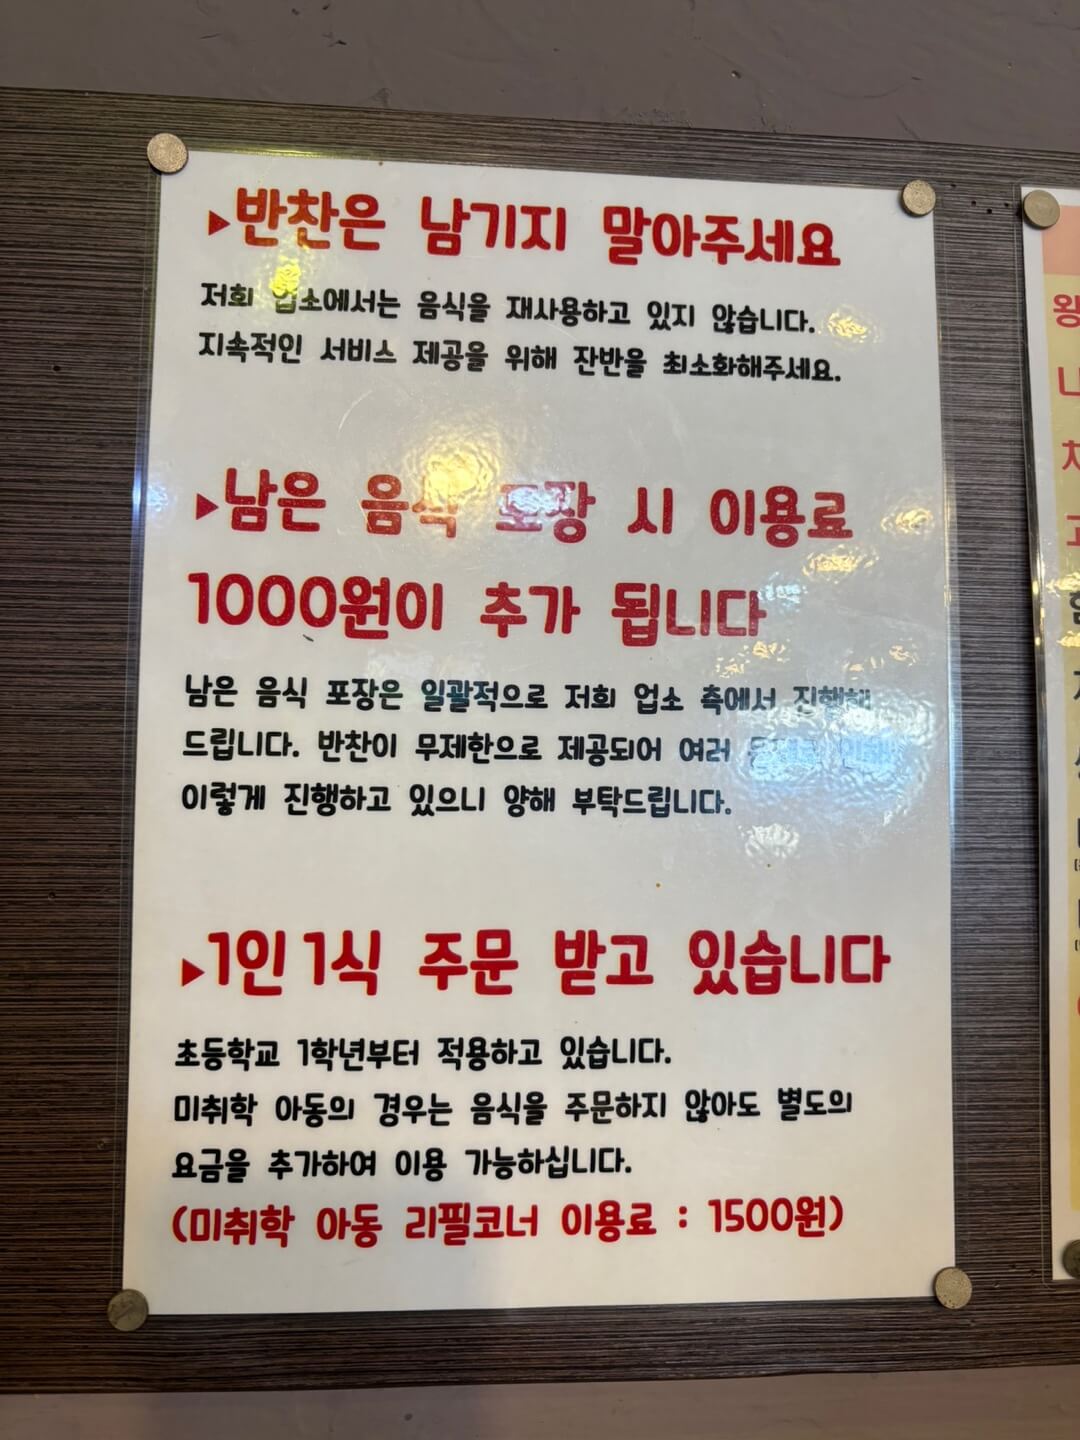 ▶반찬은 남기지 말아주세요
저희 업소에서는 음식을 재사용하고 있지 않습니다.
지속적인 서비스 제공을 위해 잔반을 최소화해주세요.
▶남은 음식 포장 시 이용료
1000원이 추가 됩니다
남은 음식 포장은 일괄적으로 저희 업소 측에서 진행해
드립니다. 반찬이 무제한으로 제공되어 여러
이렇게 진행하고 있으니 양해 부탁드립니다.
▶1인1식 주문 받고 있습니다
초등학교 1학년부터 적용하고 있습니다.
미취학 아동의 경우는 음식을 주문하지 않아도 별도의
요금을 추가하여 이용 가능하십니다.
(미취학 아동 리필코너 이용료 : 1500원)